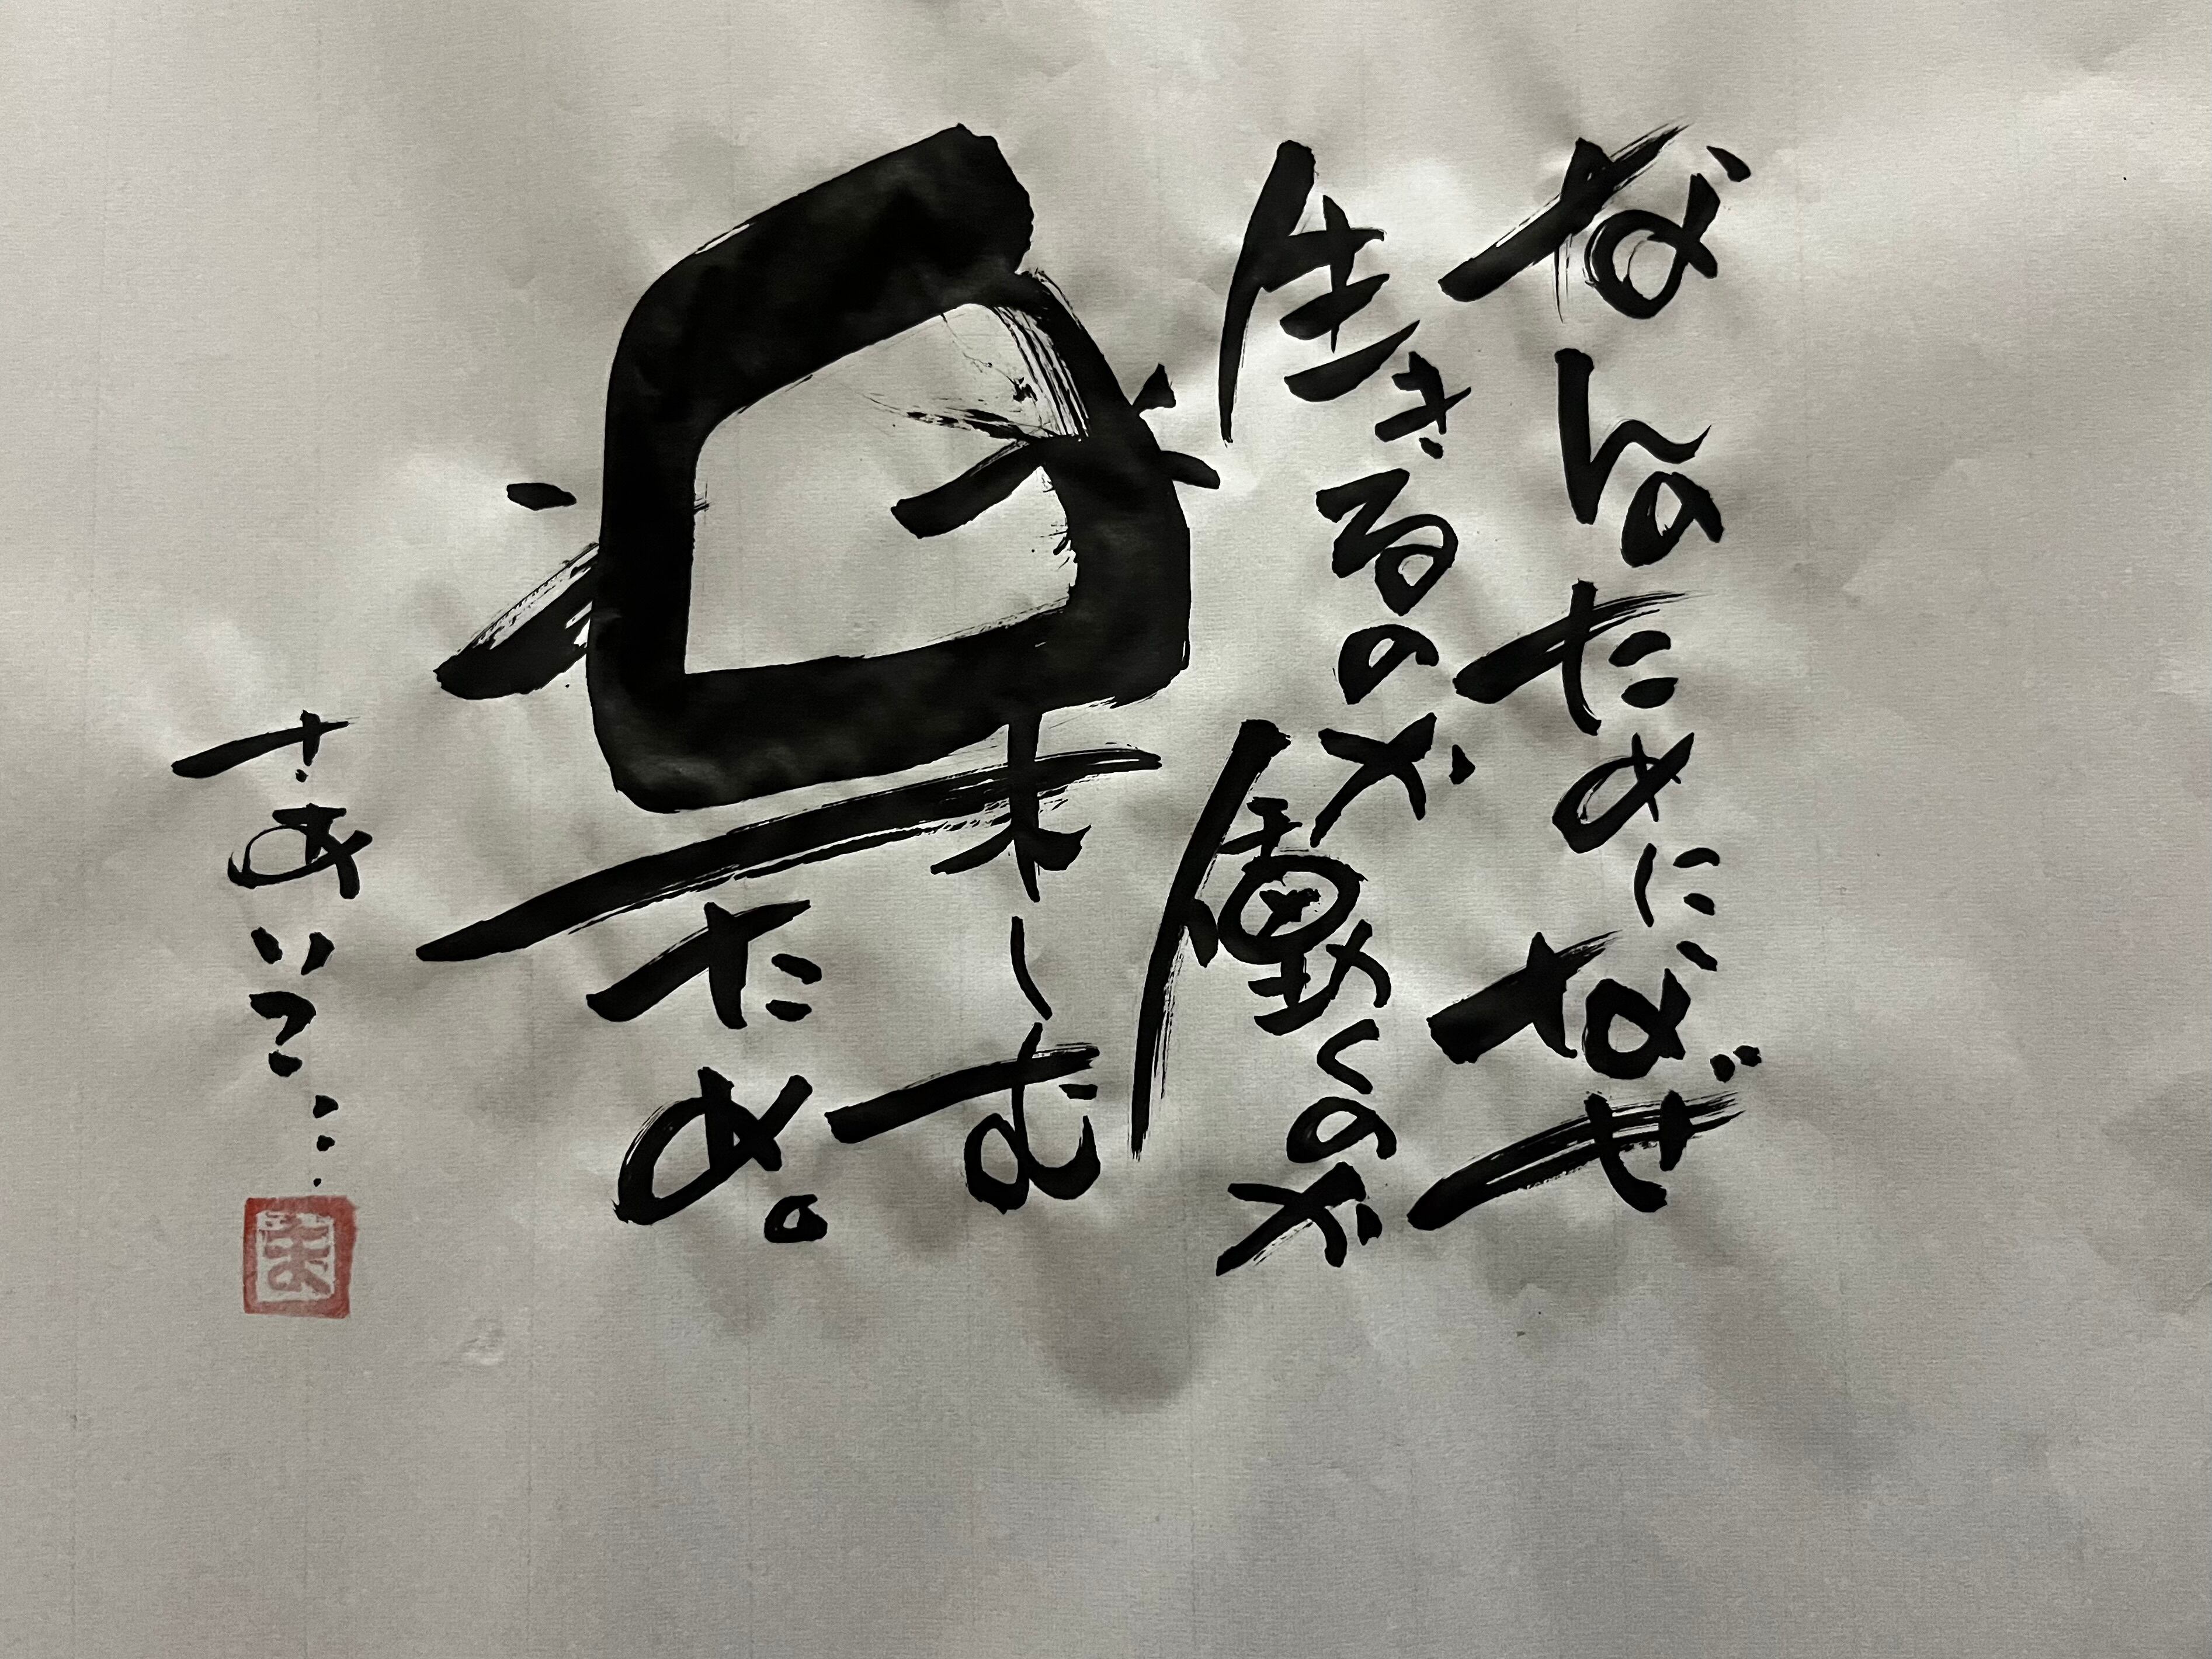 なんのためになぜ
生きるのか働くのか
楽しむ
ため。